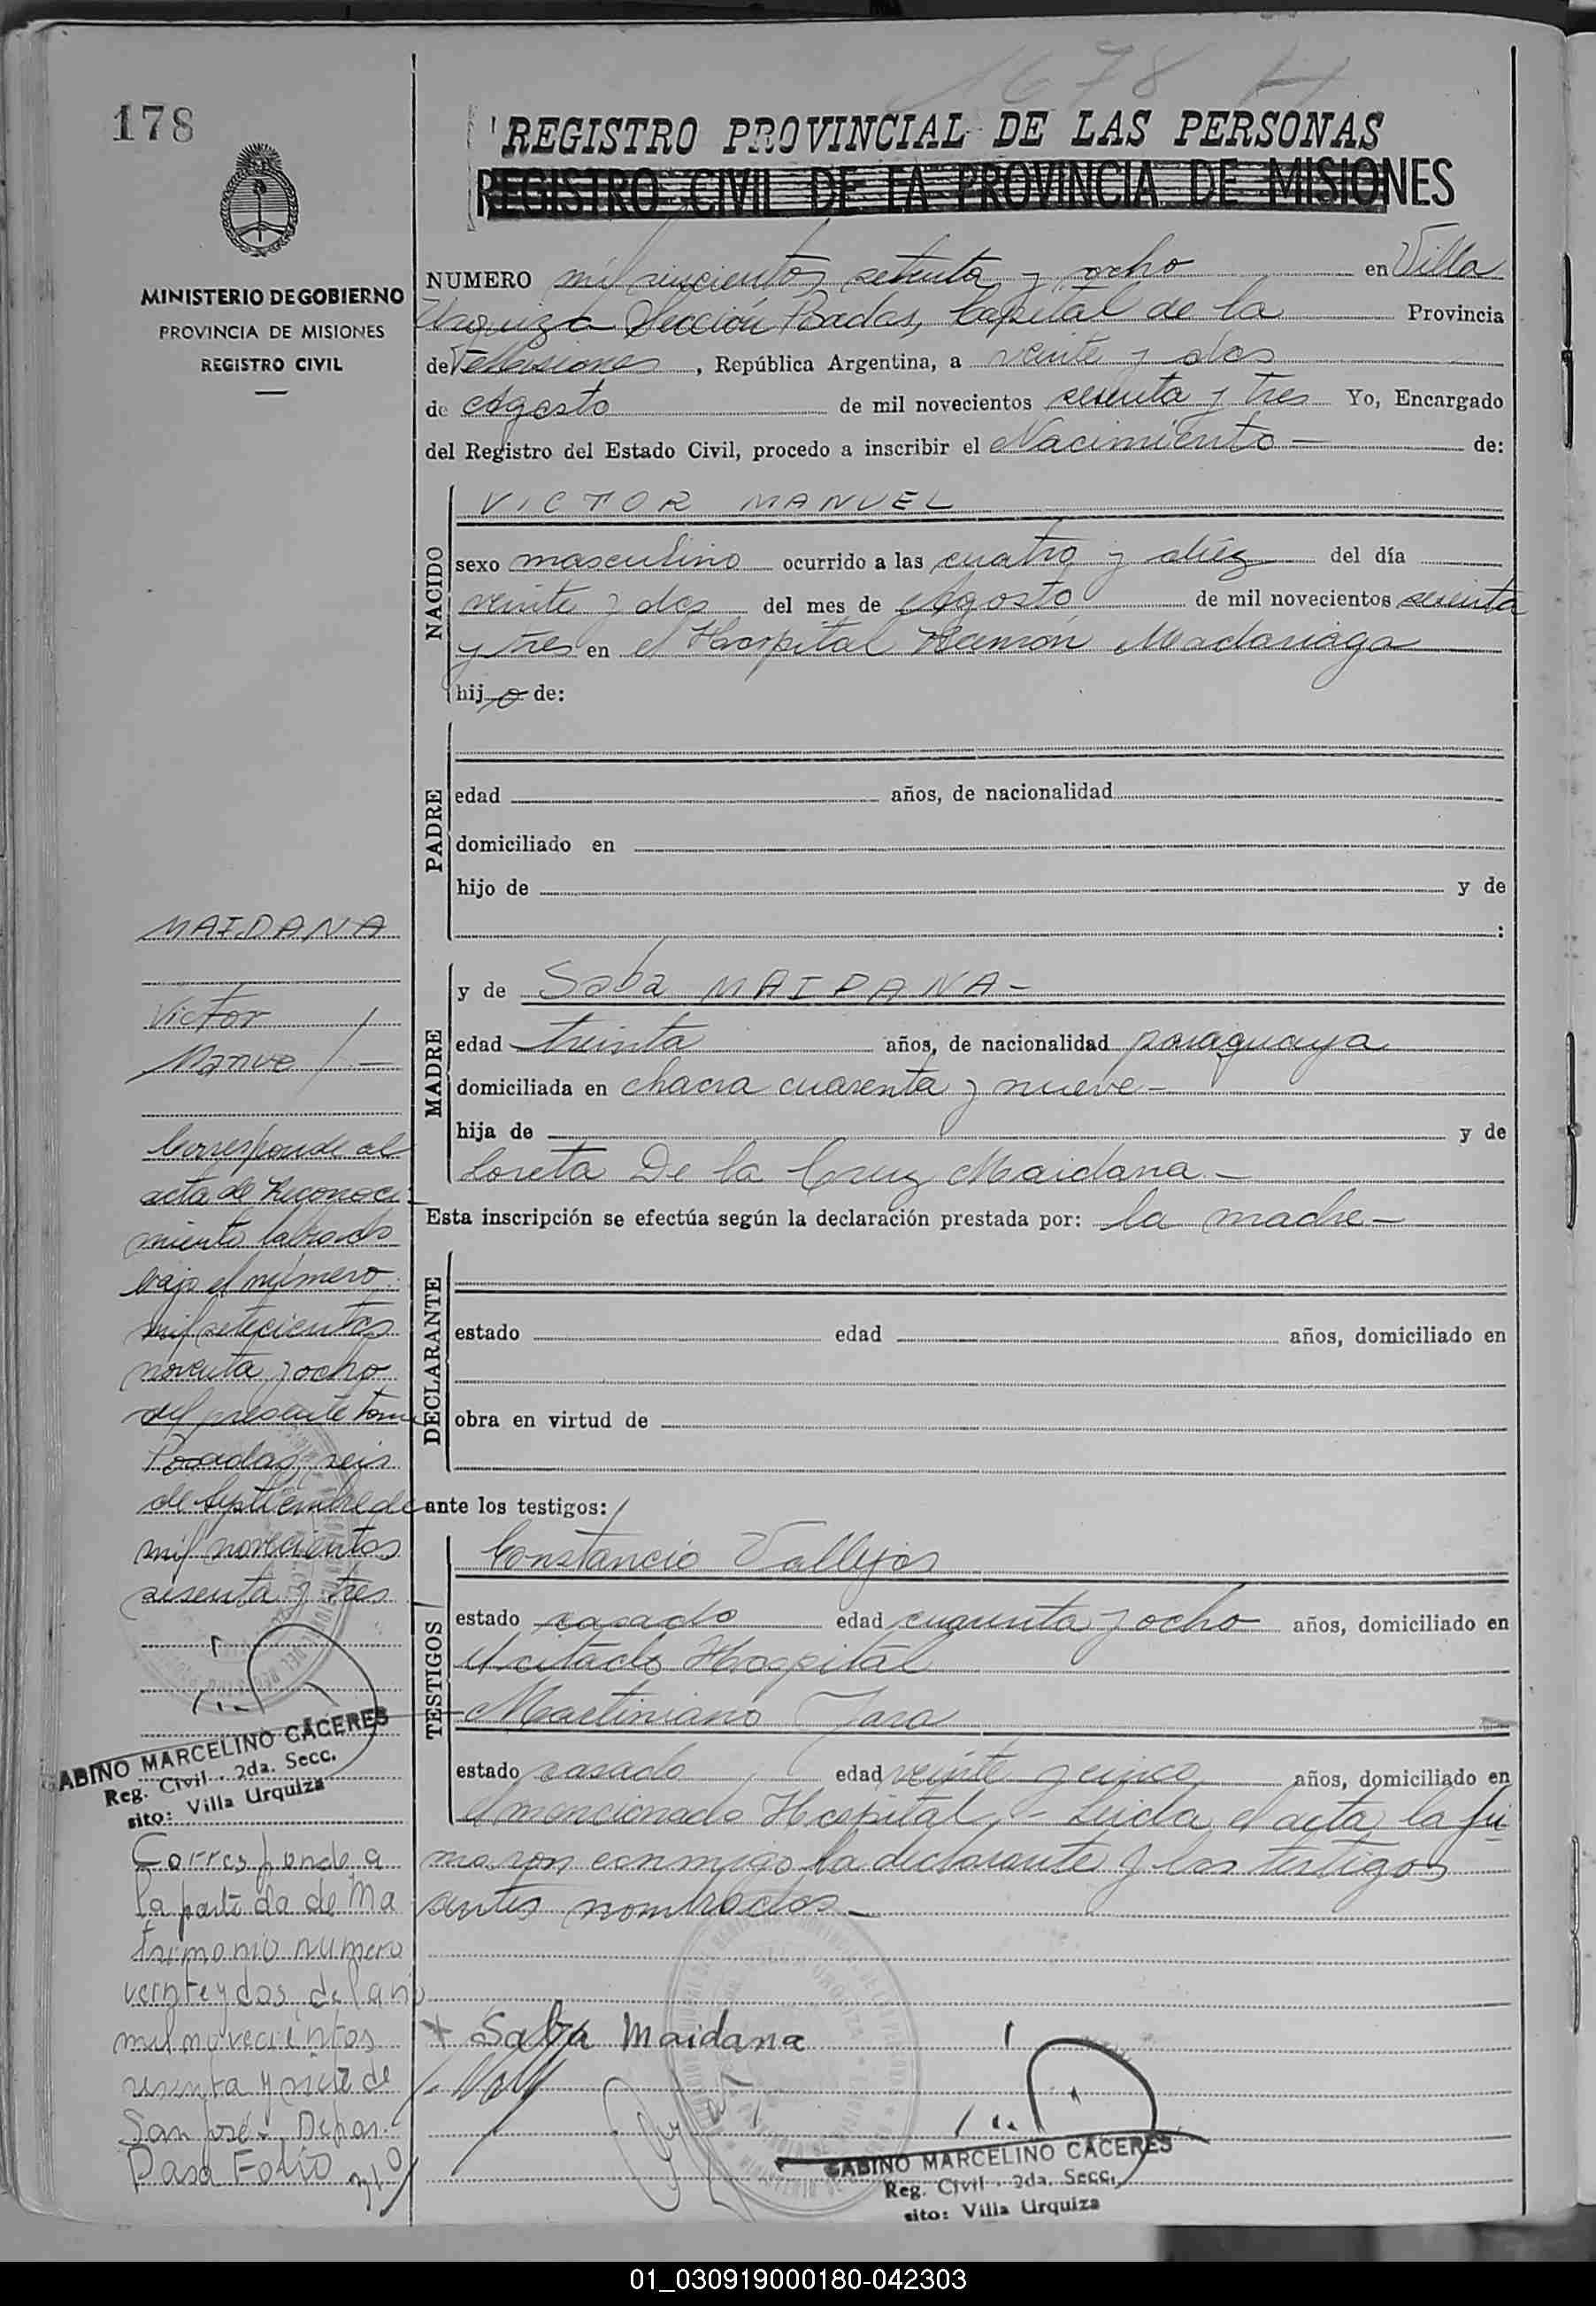 1678 H
178
REGISTRO PROVINCIAL DE LAS PERSONAS
REGISTRO CIVIL DE LA PROVINCIA DE MISIONES
MINISTERIO DE GOBIERNO
PROVINCIA DE MISIONES
REGISTRO CIVIL
NUMERO mil seiscientos setenta y ocho en Villa
Urquiza Sección Posadas, Capital de la Provincia
de Misiones, República Argentina, a veinte y dos
de Agosto de mil novecientos sesenta y tres Yo, Encargado
del Registro del Estado Civil, procedo a inscribir el Nacimiento — de:
NACIDO
VICTOR MANUEL
sexo masculino ocurrido a las cuatro y diez del día
veinte y dos del mes de Agosto de mil novecientos sesenta
y tres en el Hospital Ramón Madariaga
hijo de:
PADRE
edad años, de nacionalidad
domiciliado en
hijo de y de
:
MADRE
y de Saba MAIDANA —
edad treinta años, de nacionalidad paraguaya
domiciliada en chacra cuarenta y nueve —
hija de y de
Loreta De la Cruz Maidana —
Esta inscripción se efectúa según la declaración prestada por: la madre —
DECLARANTE
estado edad años, domiciliado en
obra en virtud de
ante los testigos:
TESTIGOS
Constancio Vallejos
estado casado edad cuarenta y ocho años, domiciliado en
el citado Hospital
Martiniano Jara
estado casado edad veinte y cinco años, domiciliado en
el mencionado Hospital. — Leida el acta, la fir
maron conmigo la declarante y los testigos
antes nombrados —
Saba Maidana
SABINO MARCELINO CACERES
Reg. Civil - 2da. Secc.
sito: Villa Urquiza
MAIDANA
Victor
Manuel —
Corresponde al
acta de Reconoci-
miento labrado
bajo el número
mil setecientos
noventa y ocho
del presente tomo
Posadas, seis
de Septiembre de
mil novecientos
sesenta y tres
SABINO MARCELINO CÁCERES
Reg. Civil - 2da. Secc.
sito: Villa Urquiza
Corresponde a
la partida de Ma
trimonio numero
veinte y dos del año
mil novecientos
sesenta y siete de
San José - Depar.
Pasa Folio
01_030919000180-042303